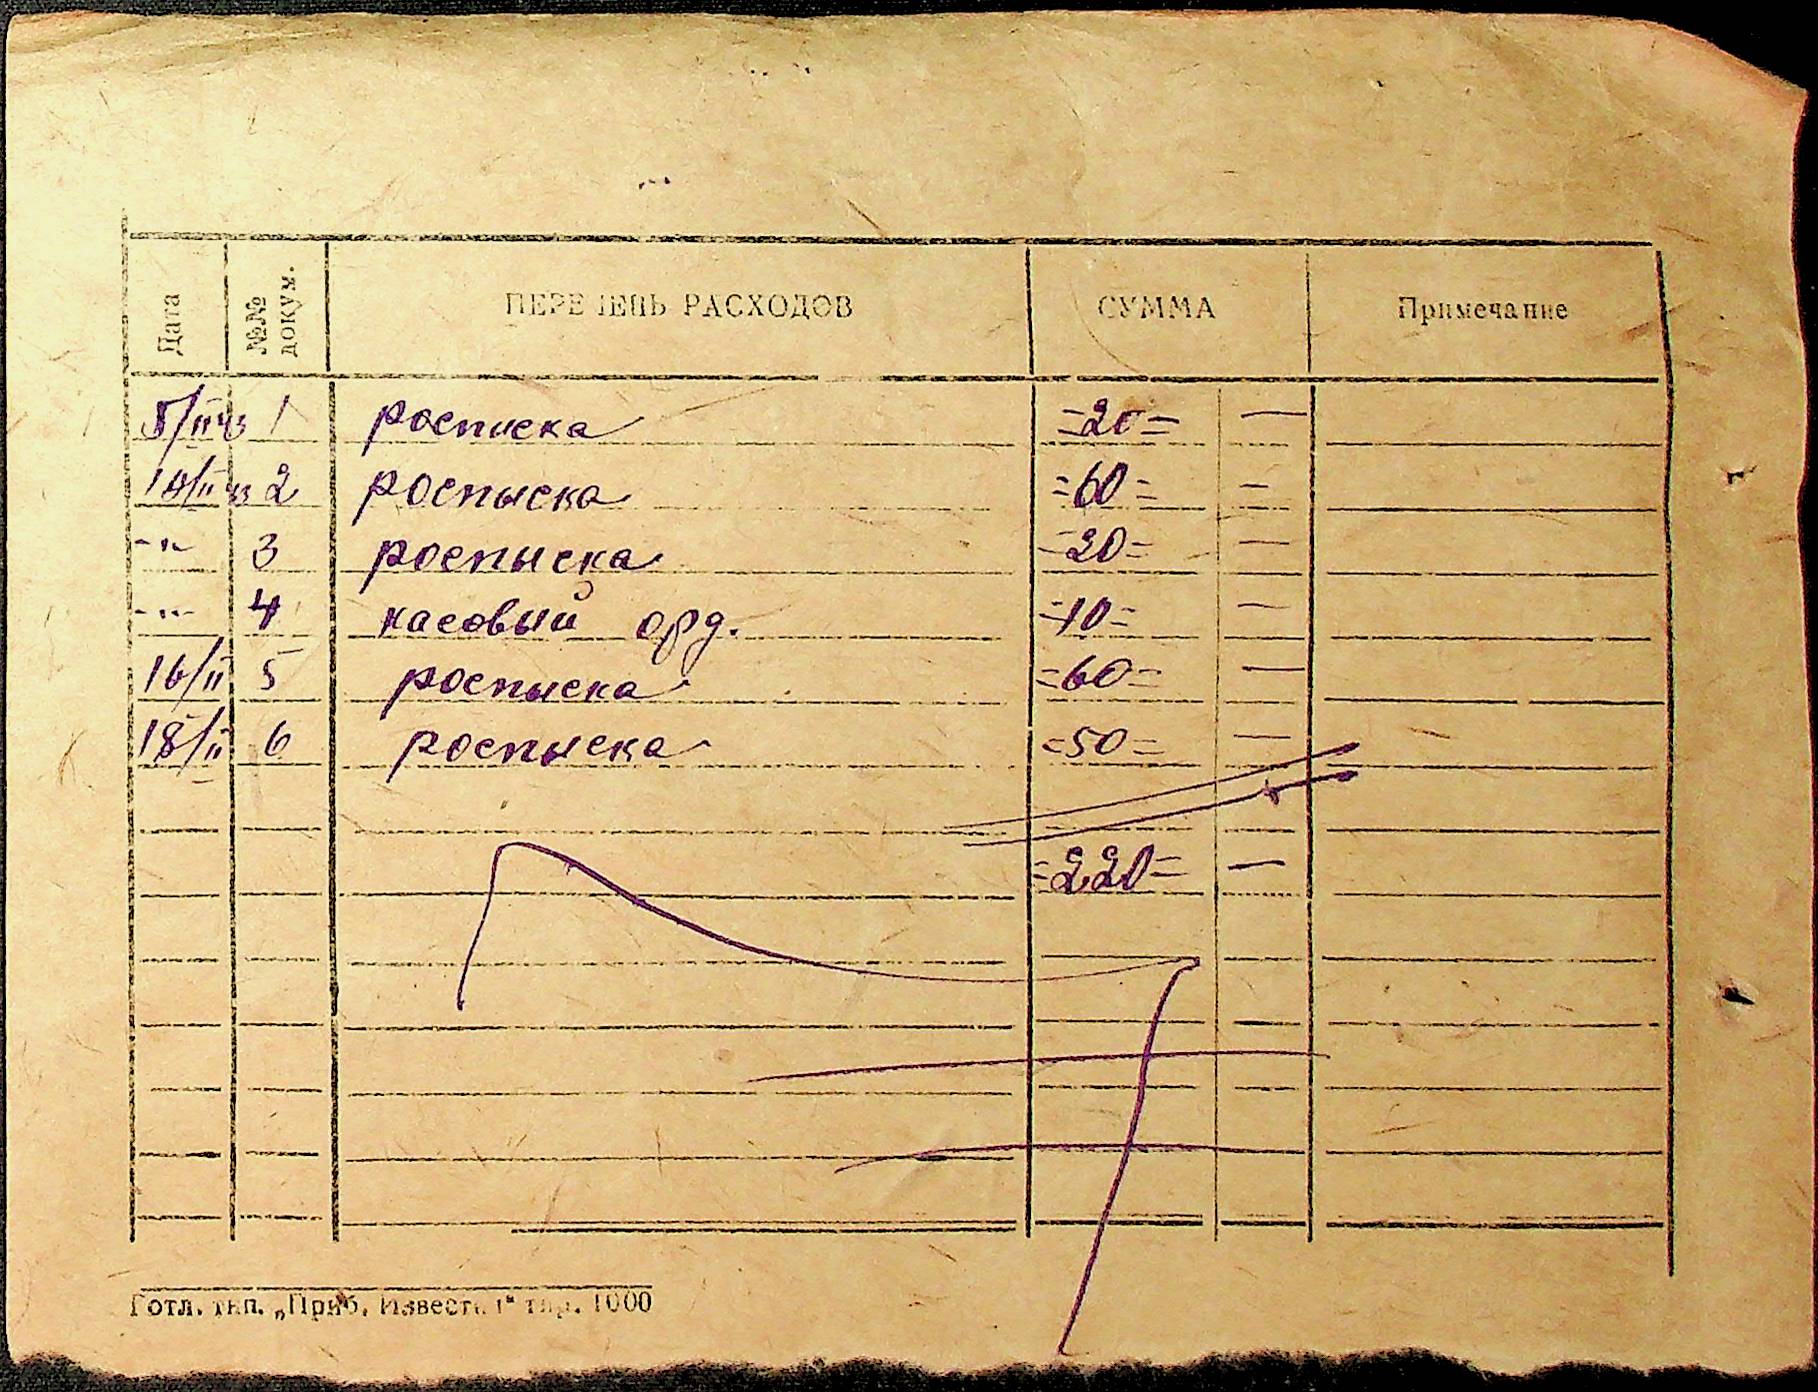 Дата №№ докум. ПЕРЕЧЕНЬ РАСХОДОВ СУММА Примечание
5/II 43 1 росписка =20= —
14/II 43 2 роспыска =60= —
-"- 3 роспыска =20= —
-"- 4 касовый орд. =10= —
16/II 5 роспыска =60= —
18/II 6 роспыска =50= —
=220= —
Готл. тип. „Приб. Известия“ тир. 1000